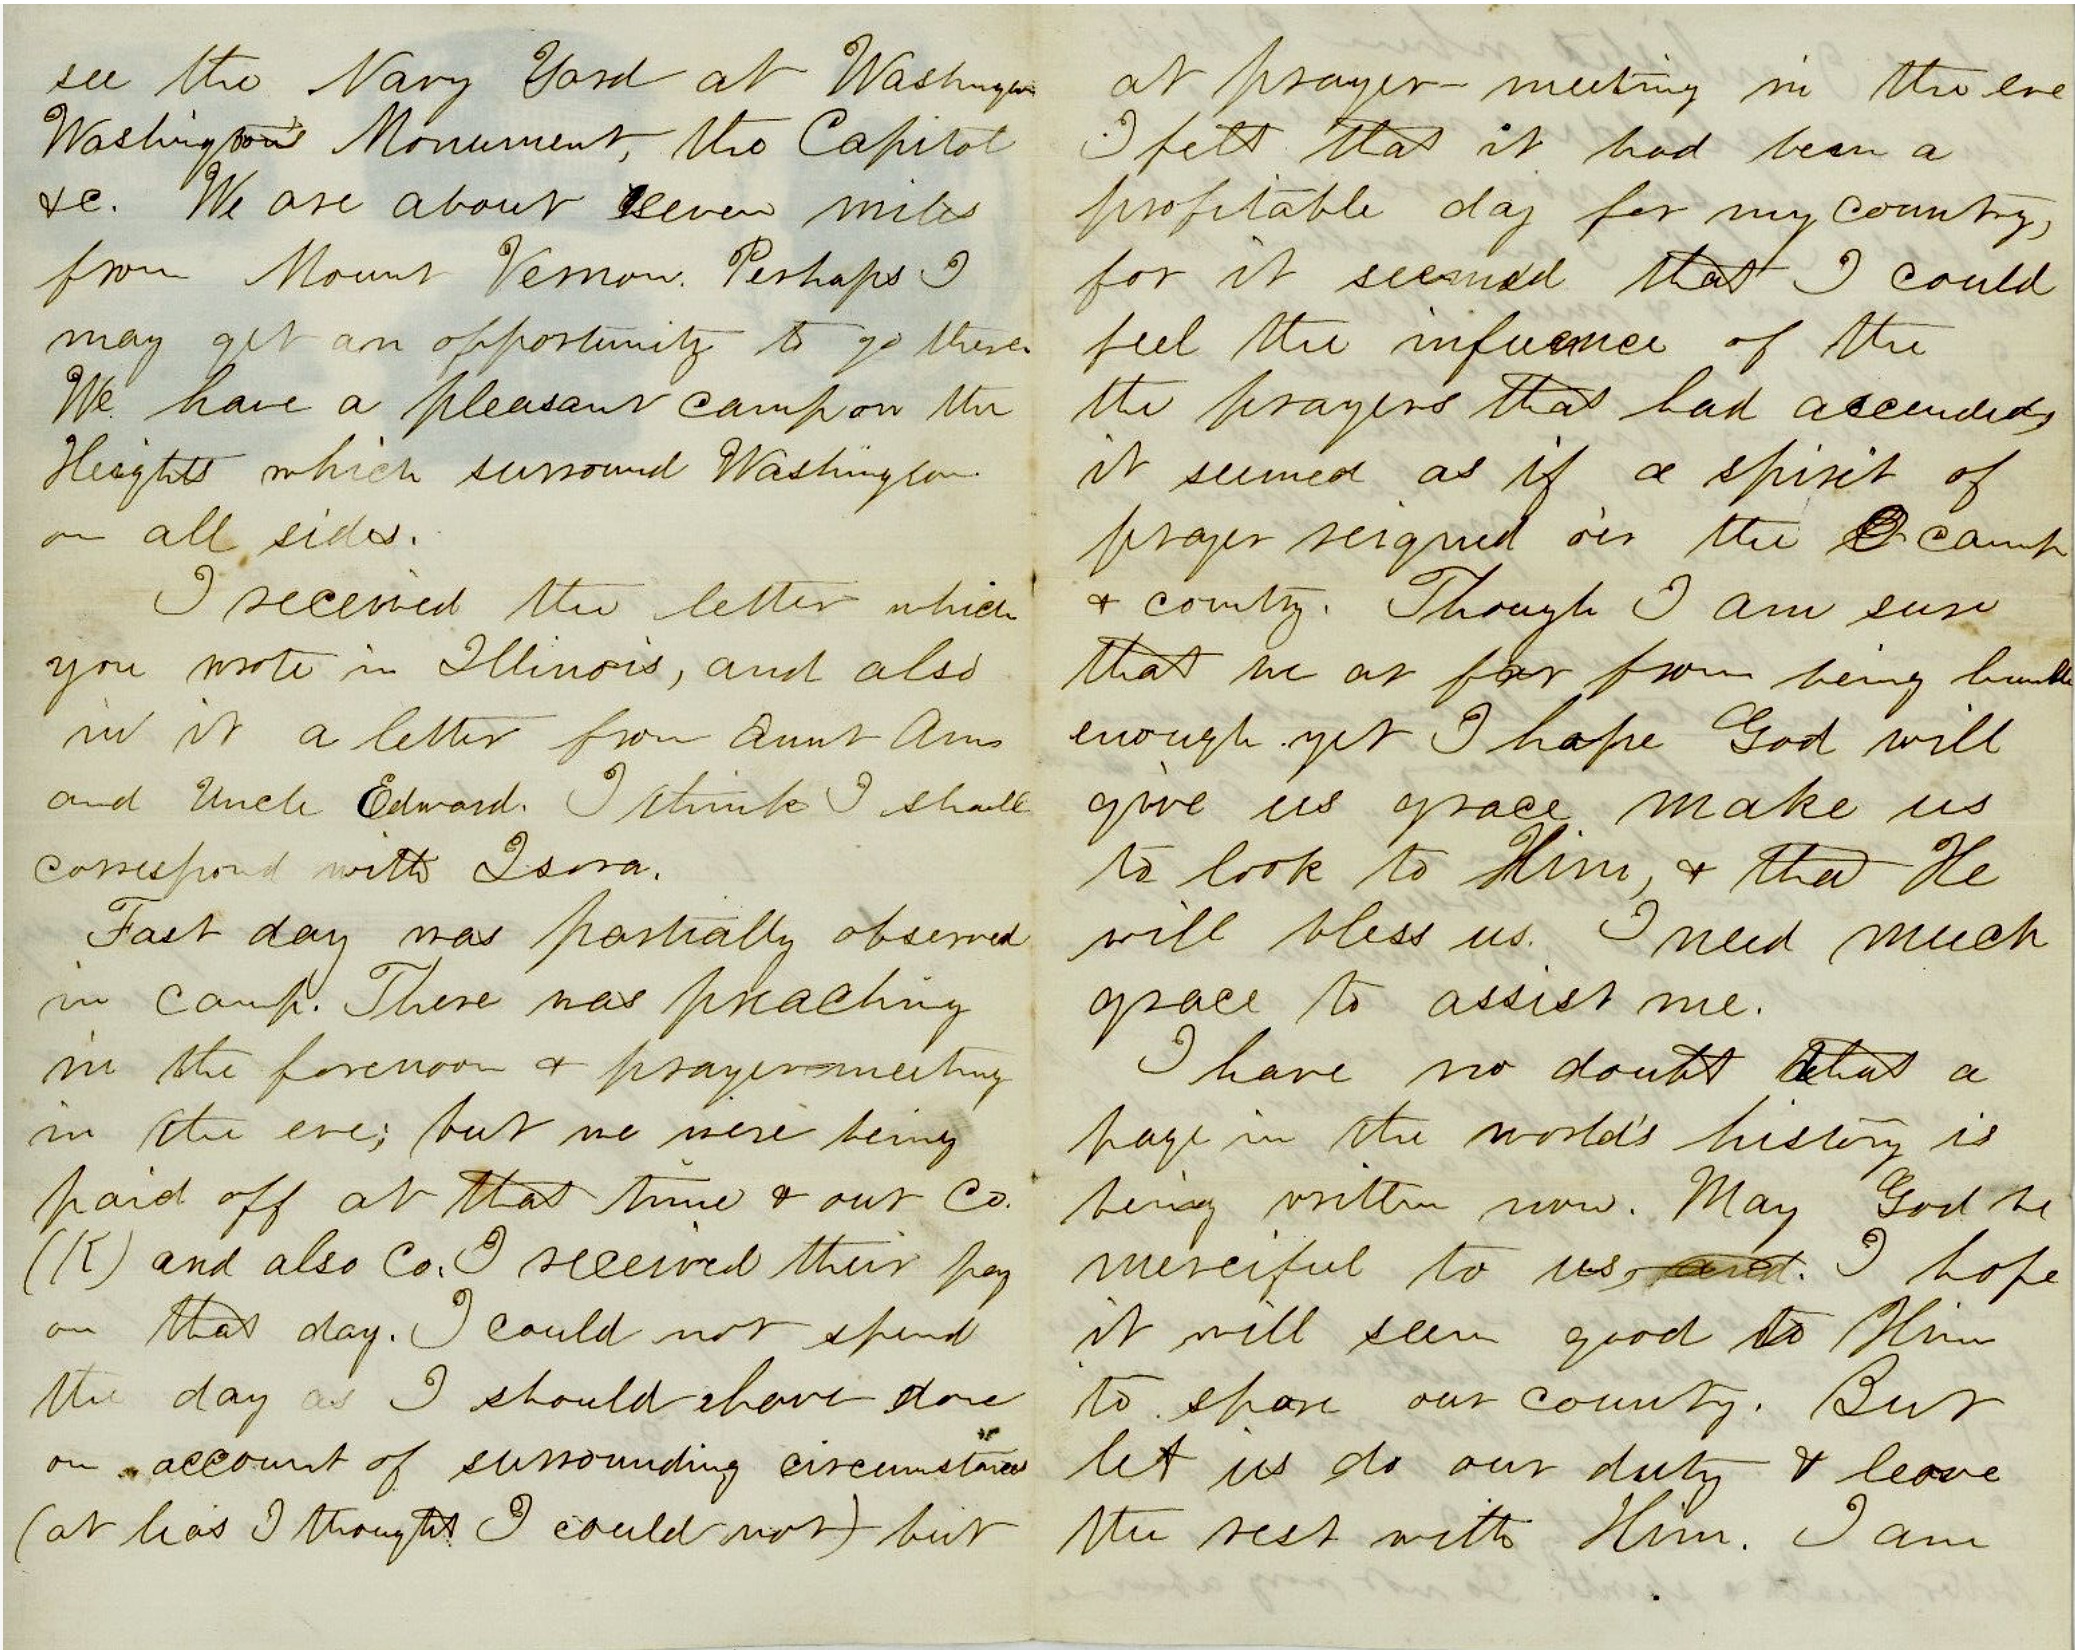 see the Navy Yard at Washington
Washington's Monument, the Capitol
&c. We are about seven miles
from Mount Vernon. Perhaps I
may get an opportunity to go there.
We have a pleasant camp on the
Heights which surround Washington
on all sides.
I received the letter which
you wrote in Illinois, and also
in it a letter from Aunt Ann
and Uncle Edward. I think I shall
correspond with Isora.
Fast day was partially observed
in camp. There was preaching
in the forenoon & prayer-meeting
in the eve; but we were being
paid off at that time & our Co.
(K) and also Co. I received their pay
on that day. I could not spend
the day as I should have done
on account of surrounding circumstances
(at leas I thought I could not) but
at prayer-meeting in the eve
I felt that it had been a
profitable day for my country,
for it seemed that I could
feel the influence of the
the prayers that had ascended,
it seemed as if a spirit of
prayer reigned o'er the camp
& country. Though I am sure
that we ar far from being humble
enough yet I hope God will
give us grace make us
to look to Him, & that He
will bless us. I need much
grace to assist me.
I have no doubt that a
page in the world's history is
being written now. May God be
merciful to us, and. I hope
it will seem good to Him
to spare our country. But
let us do our duty & leave
the rest with Him. I am